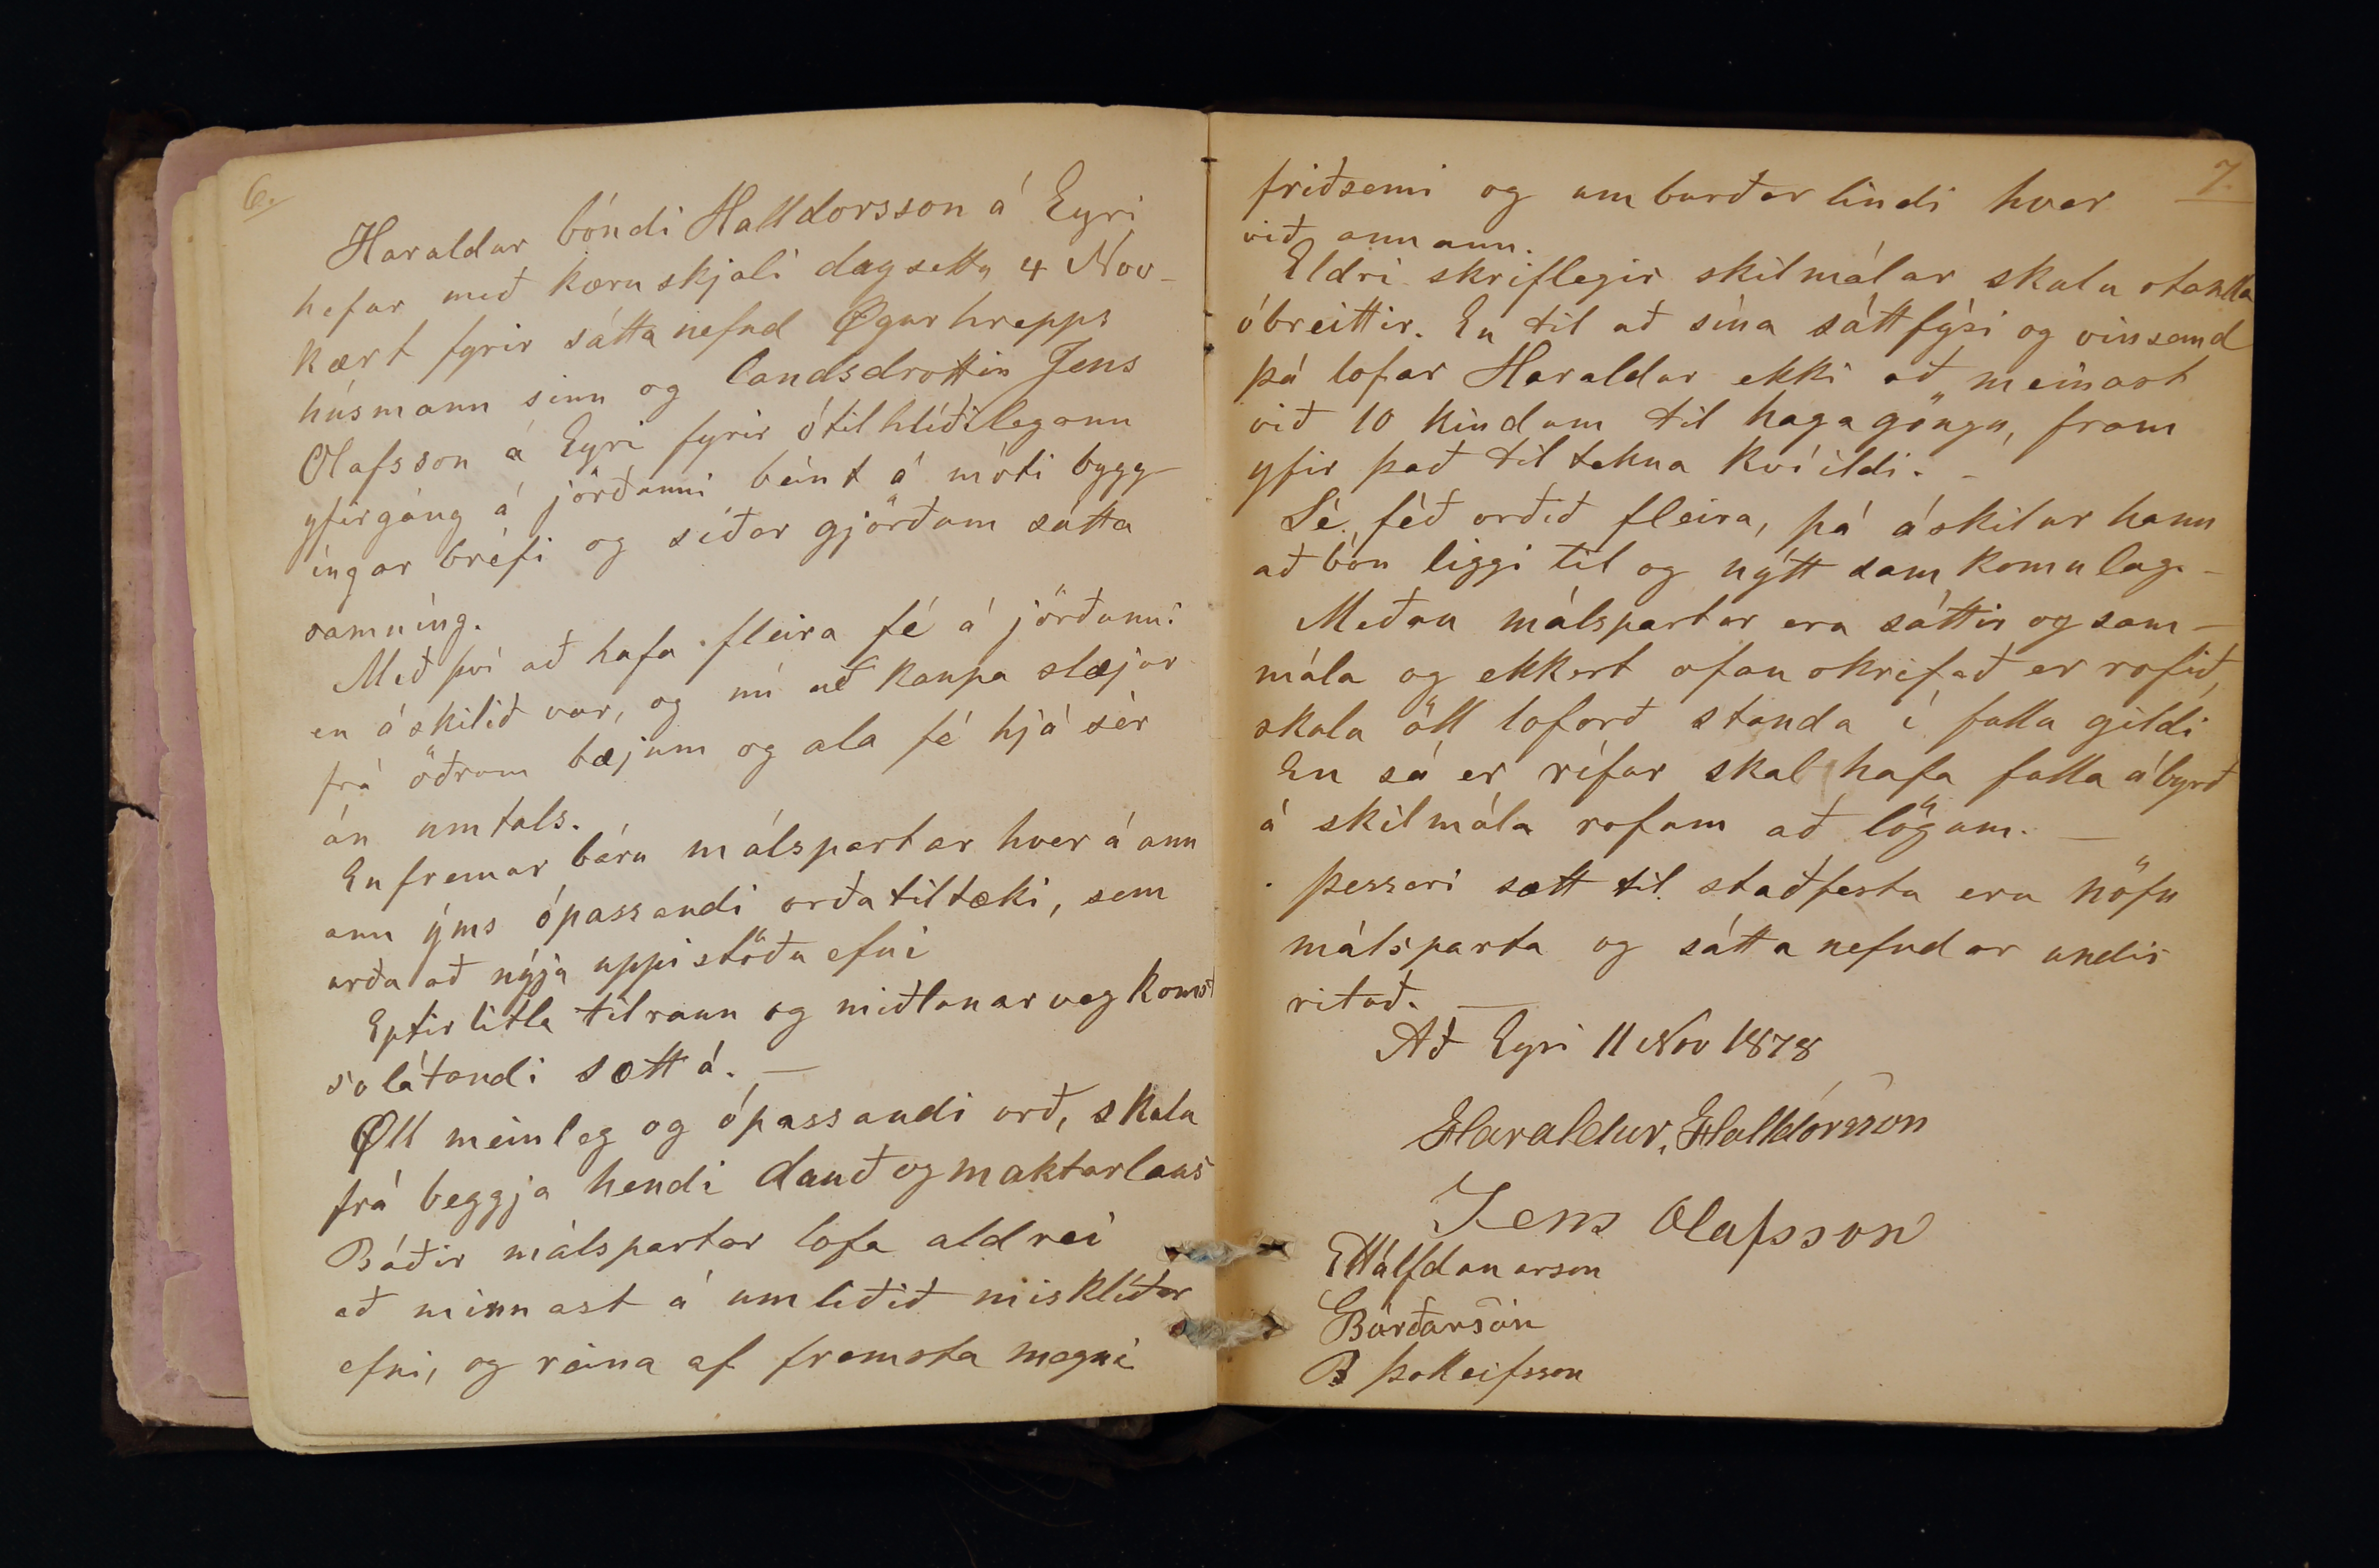 6.
Haraldur bóndi Halldorsson á Eyri
hefur með kæruskjali dagsettu 4 Nov-
kært fyrir sáttanefnd Øgurhrepps
húsmann sinn og landsdrottin Jens
Olafsson á Eyri fyrir ótilhlíðilegann
yfirgáng á jörðunni beint á móti bygg-
ingar bréfi og síðar gjörðum sátta
samníng.
Með því að hafa fleira fé á jörðunni
en áskilið var, og nú að kaupa slæjur
frá öðrum bæjum og ala fé hjá sér
án umtals.
En fremur báru málspartar hver á ann
ann ýms ópassandi orðatiltæki, sem
urðu að nýju uppistöðu efni
Eptir litla tilraun og miðlunarveg komst
solátandi sætt á. —
Øll meinleg og ópassandi orð, skulu
frá beggja hendi dauð og maktarlaus
Báðir málspartar lofa aldrei
að minnast á umliðið misklíðar
efni, og reina af fremsta megni
7.
friðsemi og umburðarlindi hver
við annann.
Eldri skriflegir skilmálar skulu standa
óbreittir. En til að sína sáttfýsi og vinsemd
þá lofar Haraldur ekki að meinast
við 10 kindum til hagagöngu, fram
yfir það tiltekna kvíildi. -
Sé féð orðið fleira, þá áskilur hann
að bón liggi til og nýtt samkomulag. -
Meðan málspartar eru sáttir og sam-
mála og ekkert ofanskrifað er rofið,
skulu öll loforð standa í fullu gildi
En sá er rífur skal hafa fulla ábyrð
á skilmála rofum að lögum. —
þessari sætt til staðfestu eru nöfn
málsparta og sáttanefndar undir
rituð. —
Að Eyri 11 Nov 1878
Haraldur, Halldórsson
Jens Olafsson
EHálfdanarson
GBárðarson
B þolleifsson